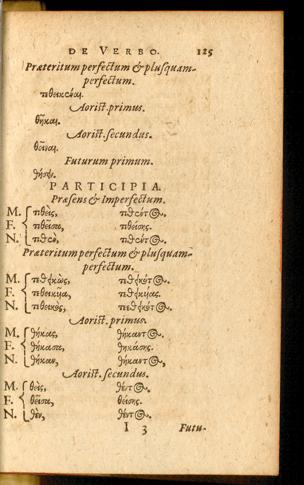 DE VERBO. 125
Præteritum perfectum & plusquam-
perfectum.
τεθεικέναι.
Aorist. primus.
θῆκαι.
Aorist. secundus.
θεῖναι.
Futurum primum.
θήσειν.
PARTICIPIA.
Præsens & Imperfectum.
M. τιθεὶς, τιθέντος.
F. τιθεῖσα, τιθείσης.
N. τιθὲν, τιθέντος.
Præteritum perfectum & plusquam-
perfectum.
M. τεθεικὼς, τεθεικότος.
F. τεθεικυῖα, τεθεικυίας.
N. τεθεικὸς, τεθεικότος.
Aorist. primus.
M. θήκας, θήκαντος.
F. θήκασα, θηκάσης.
N. θήκαν, θήκαντος,
Aorist. secundus.
M. θεὶς, θέντος.
F. θεῖσα, θείσης.
N. θὲν, θέντος.
I 3 Futu-